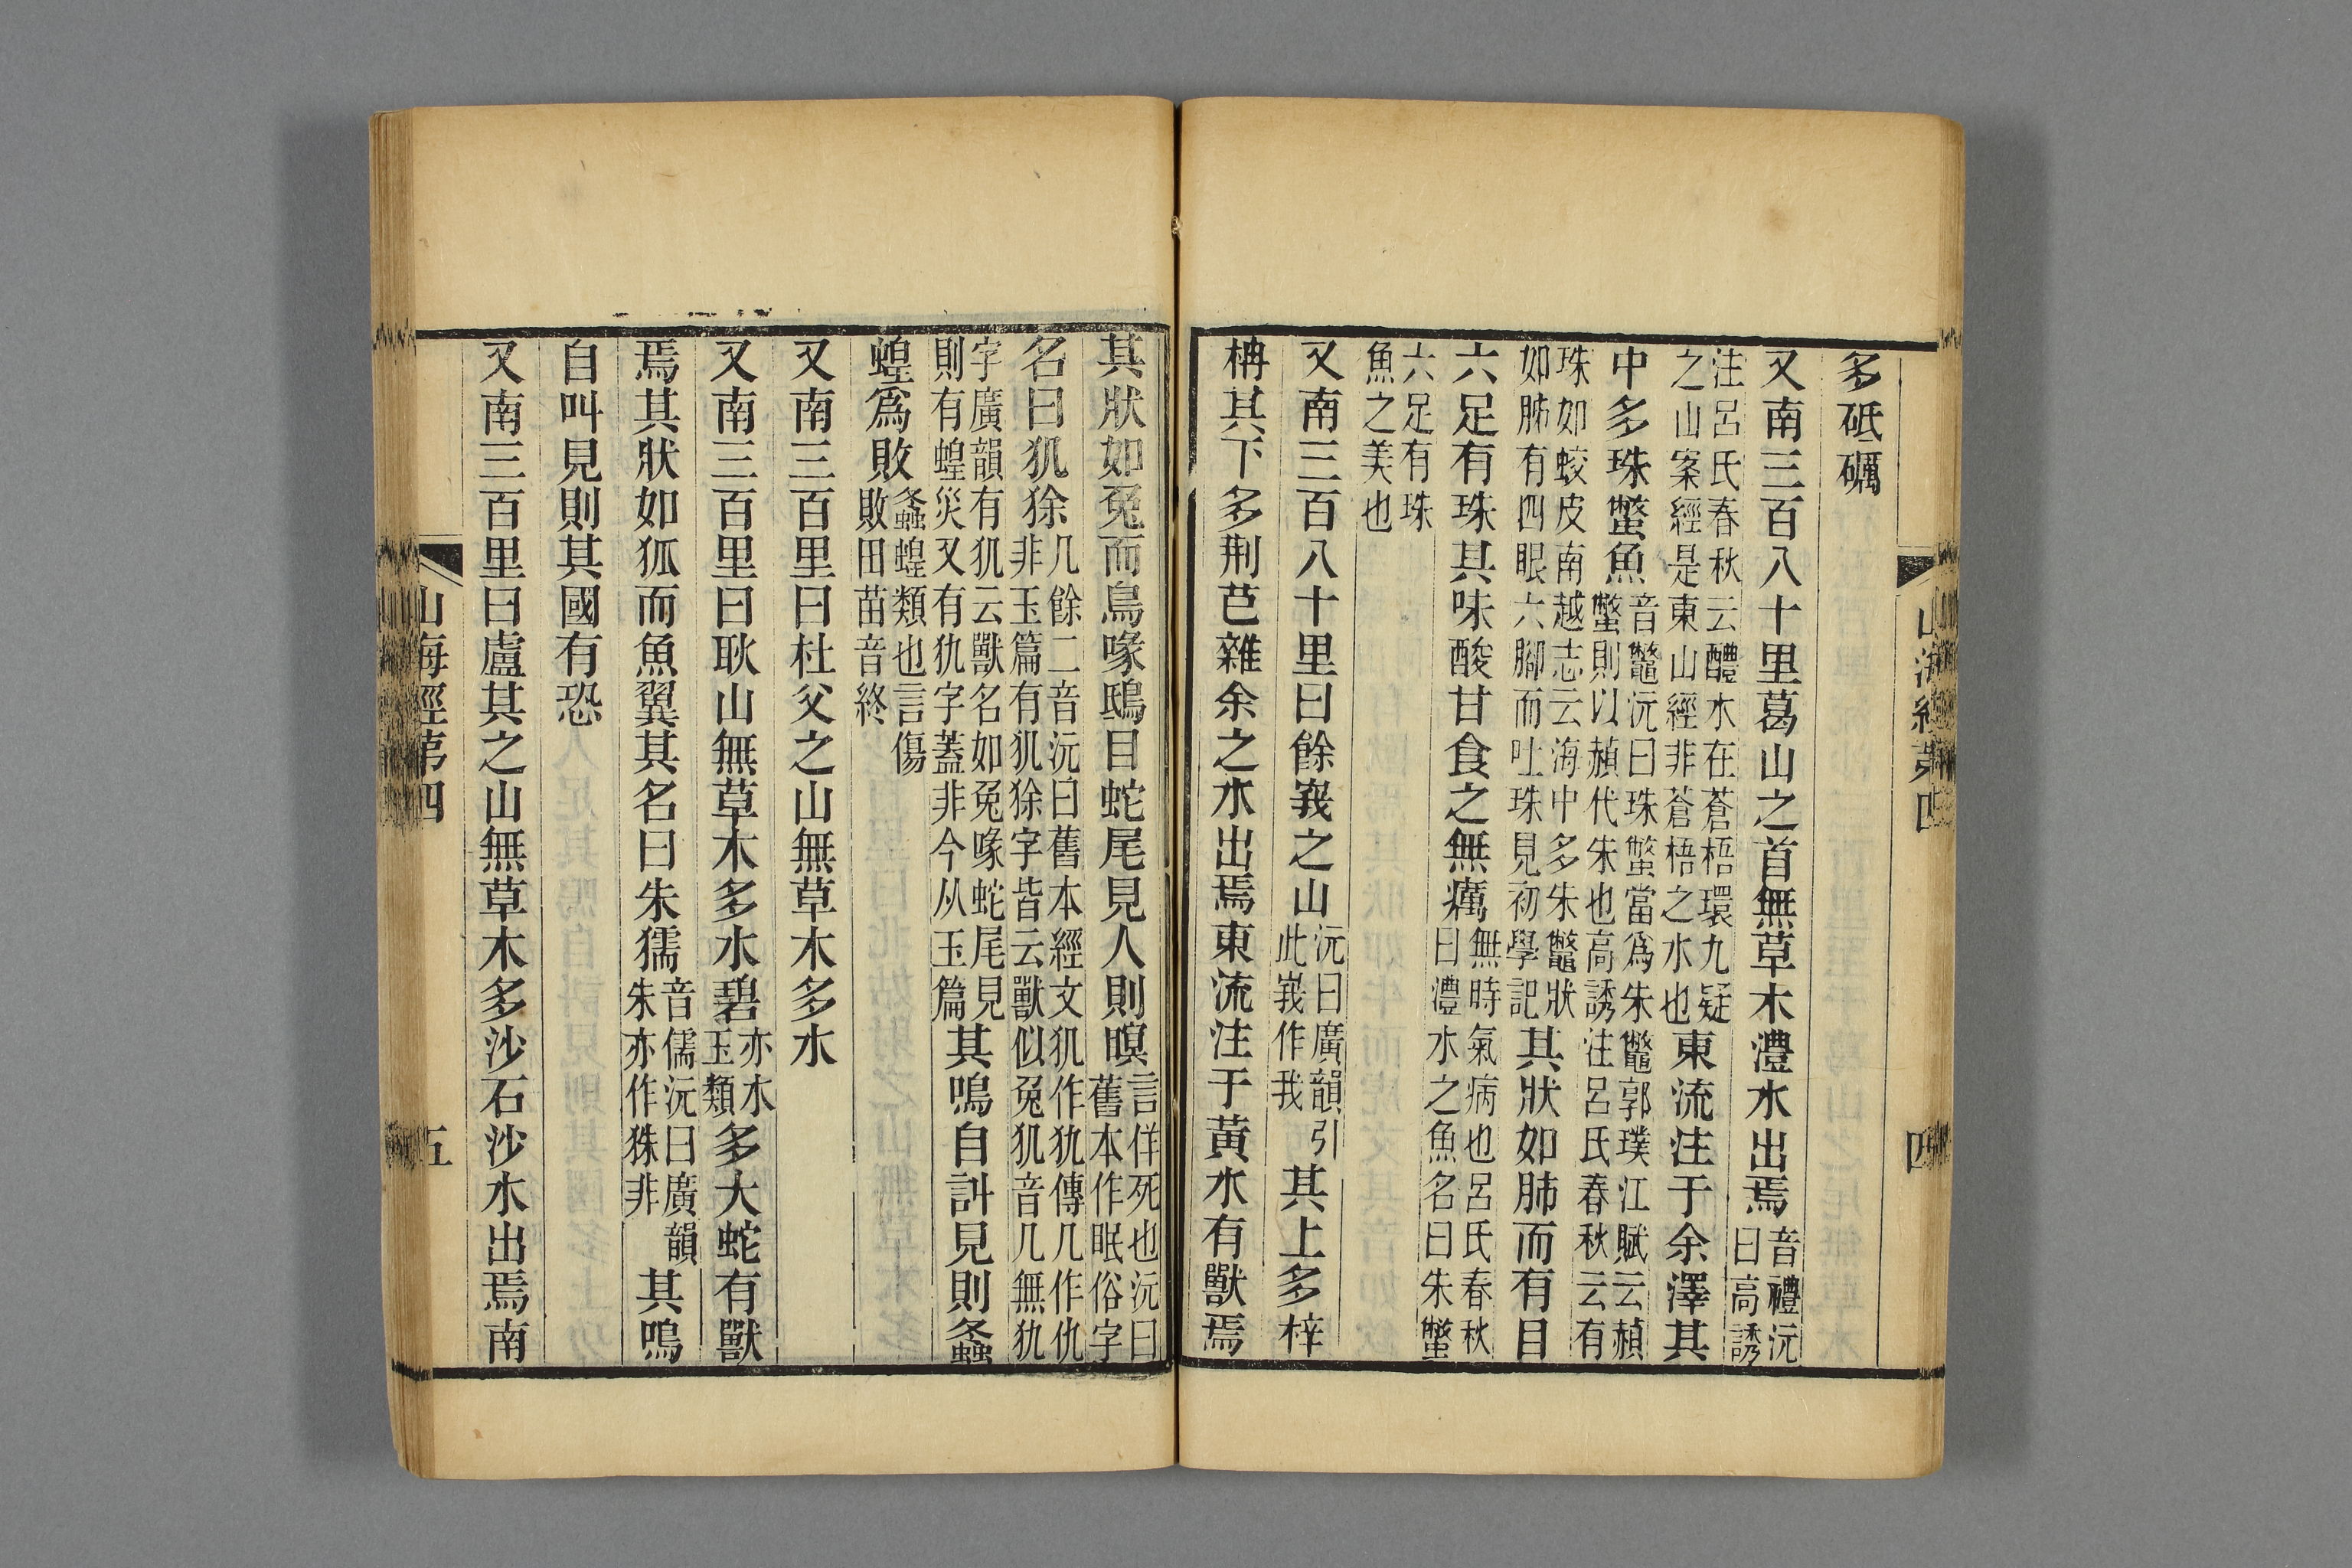 山海經第四
四
多砥礪
又南三百八十里葛山之首無草木澧水出焉音禮沅曰高誘
注呂氏春秋云醴水在蒼梧環九疑之山案經是東山經非蒼梧之水也東流注于余澤其
中多珠蟞魚音鼈沅曰珠蟞當爲朱鼈郭璞江賦云赬蟞則以赬代朱也高誘注呂氏春秋云有
珠如蛟皮南越志云海中多朱鼈狀如肺有四眼六腳而吐珠見初學記其狀如肺而有目
六足有珠其味酸甘食之無癘無時氣病也呂氏春秋曰澧水之魚名曰朱蟞
六足有珠魚之美也
又南三百八十里曰餘峩之山沅曰廣韻引此峩作我其上多梓
枏其下多荆芑雜余之水出焉東流注于黃水有獸焉
其狀如菟而鳥喙鴟目蛇尾見人則瞑言佯死也沅曰舊本作眠俗字
名曰犰狳几餘二音沅曰舊本經文犰作㺲傳几作仇非玉篇有犰狳字皆云獸似兔犰音几無㺲
字廣韻有犰云獸名如兔喙蛇尾見則有蝗災又有㺲字蓋非今从玉篇其鳴自訆見則螽
蝗爲敗螽蝗類也言傷敗田苗音終
又南三百里曰杜父之山無草木多水
又南三百里曰耿山無草木多水碧亦水玉類多大蛇有獸
焉其狀如狐而魚翼其名曰朱獳音儒沅曰廣韻朱亦作猍非其鳴
自叫見則其國有恐
又南三百里曰盧其之山無草木多沙石沙水出焉南
山海經第四
五